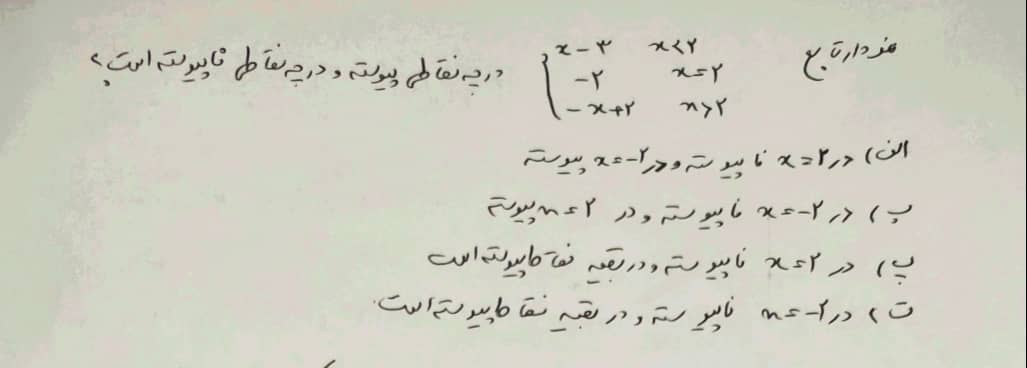 نمودار تابع { x-۳ x<۲ در چه نقاطی پیوسته و در چه نقاطی ناپیوسته است؟
-۲ x=۲
-x+۲ x>۲
الف) در x=۲ ناپیوسته و در x=-۲ پیوسته
ب) در x=-۲ ناپیوسته و در x=۲ پیوسته
پ) در x=۲ ناپیوسته و در بقیه نقاط پیوسته است
ت) در x=-۲ ناپیوسته و در بقیه نقاط پیوسته است.